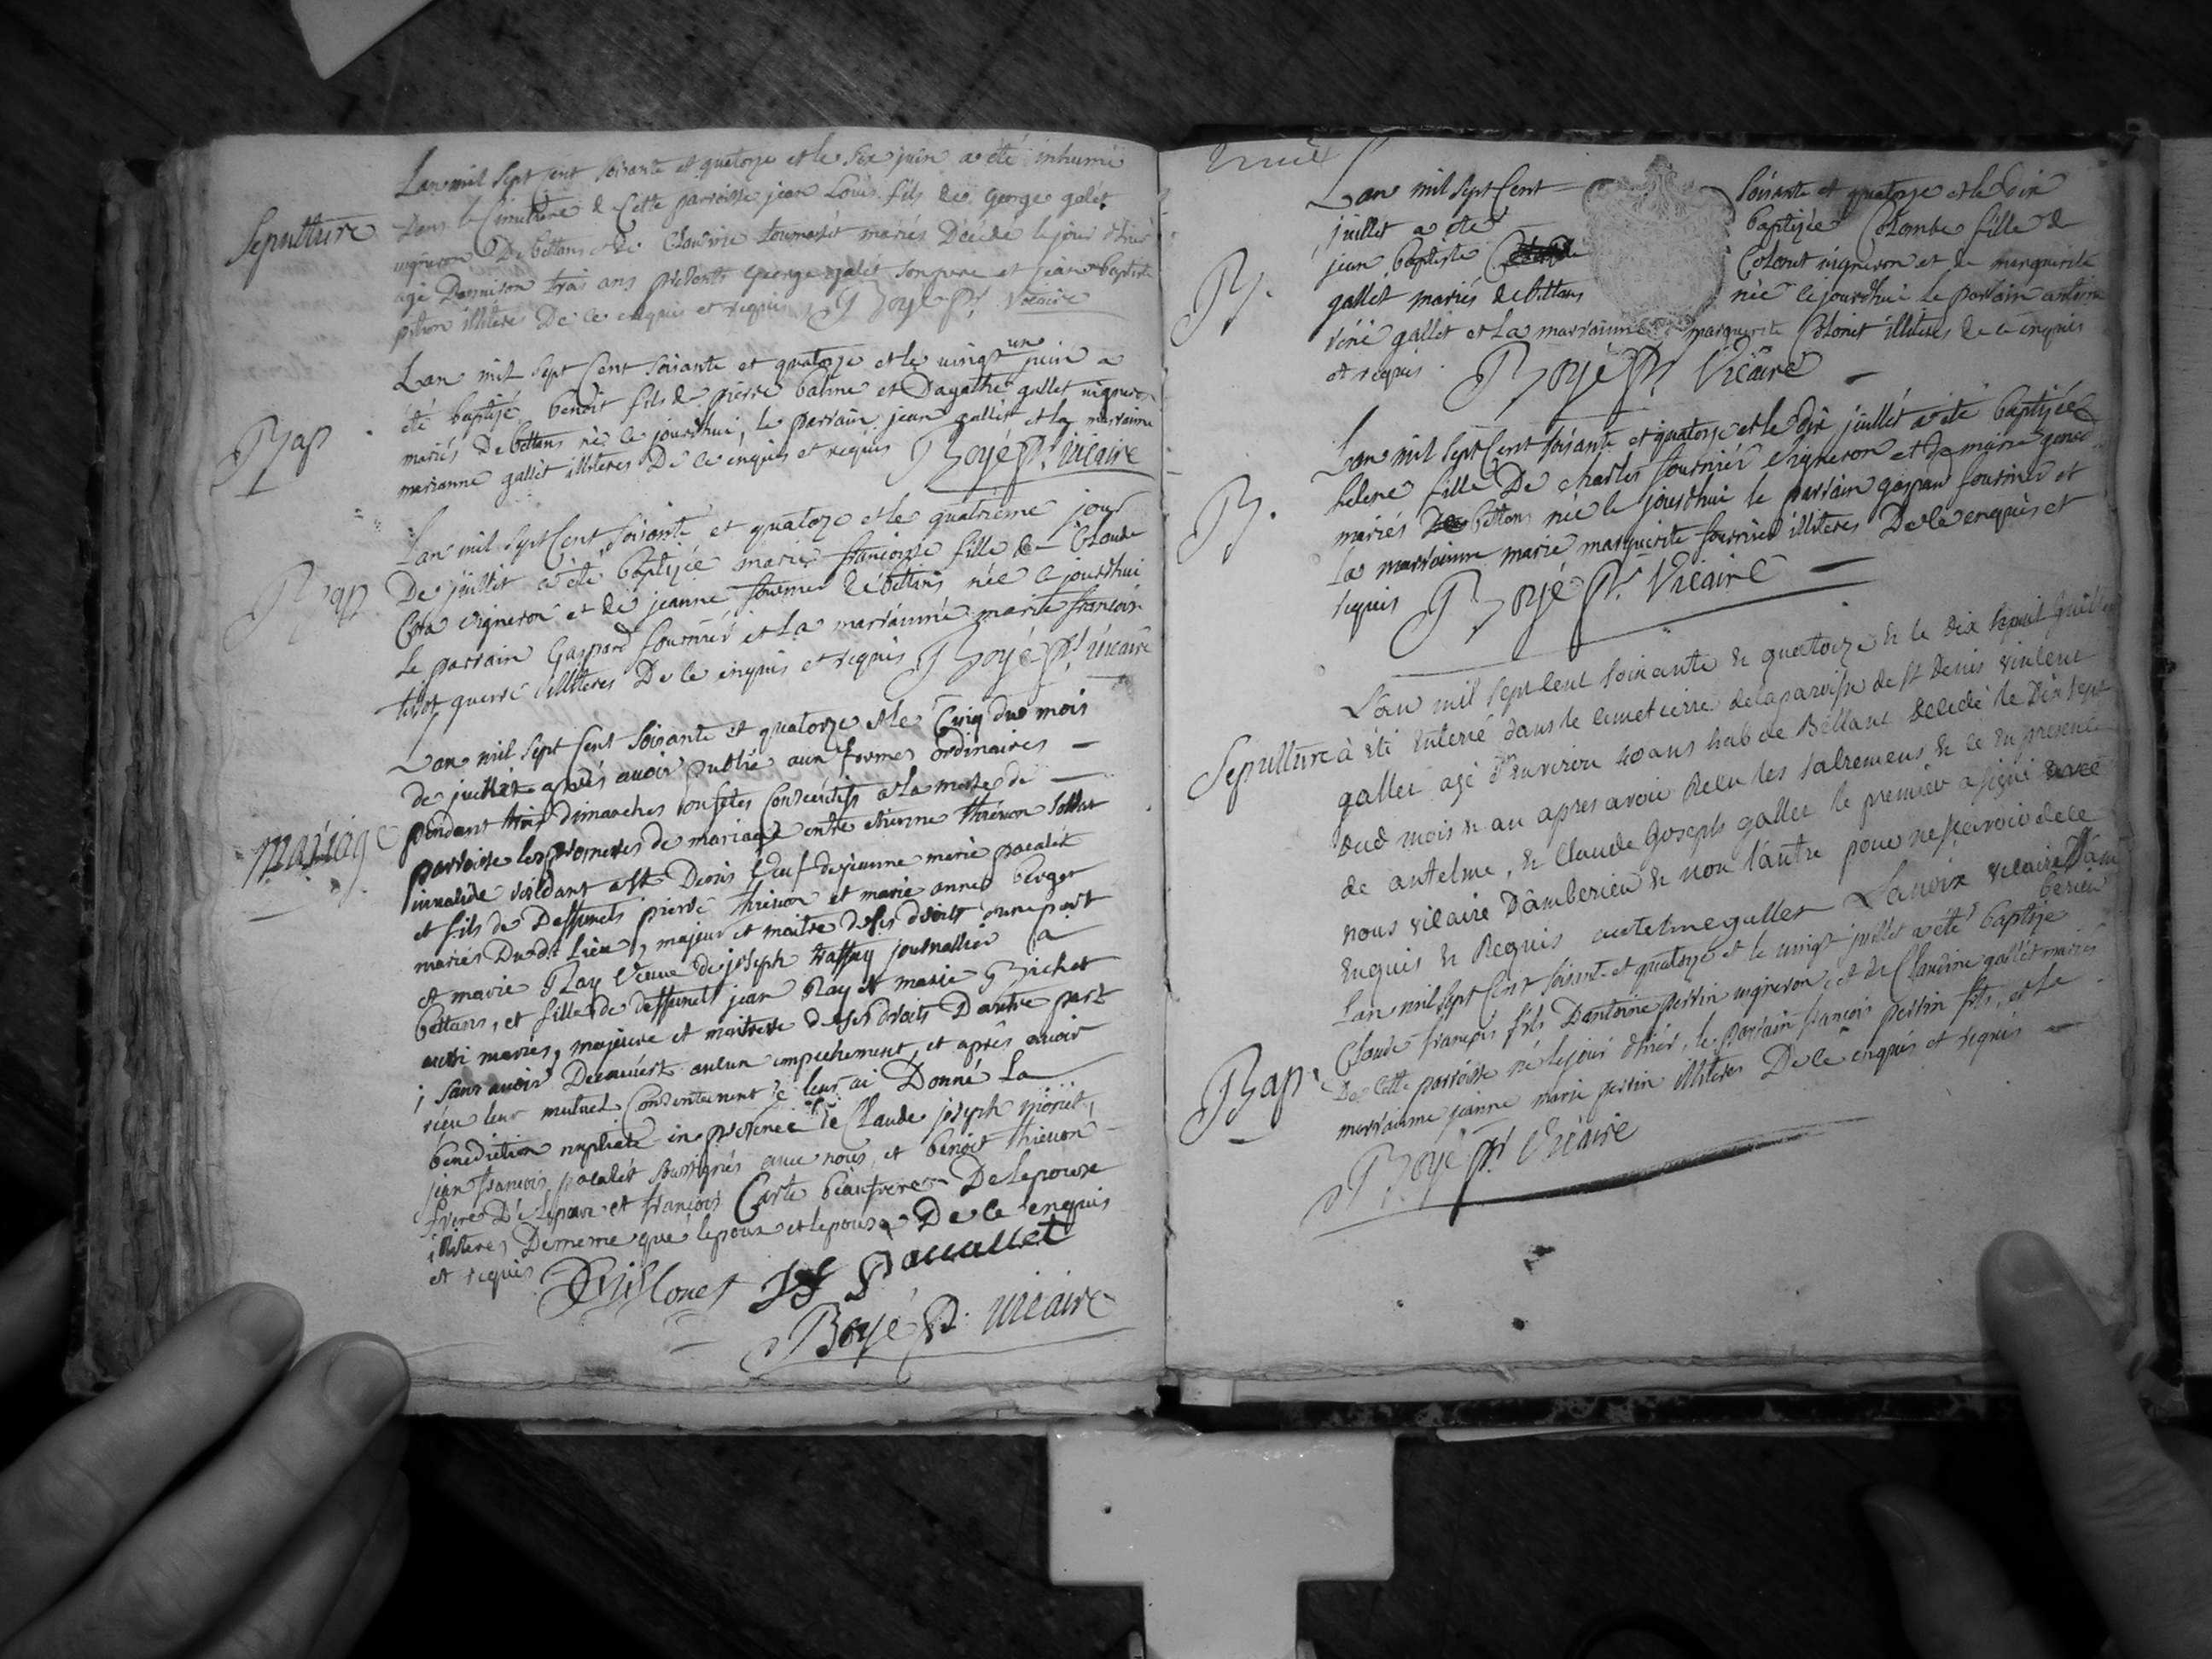 Sepulture
Lan mil sept cent soixante et quatorze et le six juin a été inhumé
dans le cimetiere de cette parroisse jean Louis fils de George galet
vigneron De bettans et de Claudine tournerit mariés Décédé le jour d'hier
agé Denviron trois ans présents george galet son pere et jean baptiste
pithion illiteres De ce enquis et requis Boyé ptr vicaire
Bap
Lan mil sept cent soixante et quatorze et le vingt un juin a
été baptizé benoit fils de pierre balme et Dagathe gallet vigneron
mariés De bettans né ce jourdhui, le parrain jean gallet et la marraine
marianne gallet illiteres De ce enquis et requis Boyé ptr vicaire
Bap
Lan mil sept cent soixante et quatorze et le quatrieme jour
De juillet a été baptizée marie françoise fille de Claude
Cota vigneron et de jeanne fournier de bettans née ce jourdhui
le parrain Gaspard fournier et la marraine marie françoise
tissot guerre illiteres De ce enquis et requis Boyé ptr vicaire
mariage
Lan mil sept cent soixante et quatorze et le Cinq du mois
de juillet après avoir publié aux formes ordinaires
pendant trois dimanches ou fetes consécutifs a la messe de
parroisse les promesses de mariage entre etienne thievon soldat
invalide residant a St Denis veuf de jeanne marie pacalet
et fils de deffunts pierre thievon et marie anne berger
mariés Dudit Lieu, majeur et maitre de ses droits dune part
et marie Ray veuve de joseph traffay journallier a
bettans, et fille de deffunts jean Ray et marie Brichet
aussi mariés, majeure et maitresse de ses droits Dautre part
; sans avoir Decouvert aucun empechement, et après avoir
réçu leur mutuel consentement je leur ai Donné la
benediction nuptiale in presence de Claude joseph moriet,
jean françois pacalet soussignés avec nous, et benoit thievon
frere De lepoux et françois Carte beaufrere De lepouse
illiteres, De meme que lepoux et lepouse De ce enquis
et requis
JF Pacallet
Boyé Ptr vicaire
B.
Lan mil sept Cent soixante et quatorze et le dix
juillet a été baptizée Colombe fille de
jean baptiste Colonet vigneron et de marguerite
gallet mariés de bettans née cejourdhui le parrain antoine
réné gallet et la marraine marguerite Colonet illiteres de ce enquis
et requis. Boyé ptr Vicaire
B.
Lan mil sept Cent soixante et quatorze et le dix juillet a été baptizée
helene fille De charles fournier vigneron et de marie
mariés bettans née ce jourdhui le parrain gaspard fournier et
la marraine marie marguerite fournier illiteres De ce enquis et
requis Boyé Ptr Vicaire
Sepulture
L'an mil sept cent soixante & quatorze & le dix huit juillet
à été enterré dans le cimetierre de la paroisse de St Denis vincent
gallet agé d'environ 40 ans hab de Béttant decedé le dix sept
dud mois & an apres avoir reçu les sacremens & ce en presence
de antelme, & Claude joseph gallet le premier a signé avec
nous vicaire d'amberieu & non l'autre pour ne sçavoir de ce
enquis & Requis antelme gallet Lanoix vicaire d'am
berieu
Bap.
Lan mil sept cent soixante et quatorze et le vingt juillet a été baptizé
Claude françois fils Dantoine perrin vigneron, et de Claudine gallet mariés
De cette parroisse né le jour d'hier, le parrain françois perrin fils, et la
marraine jeanne marie perrin illiteres De ce enquis et requis
Boyé ptr Vicaire